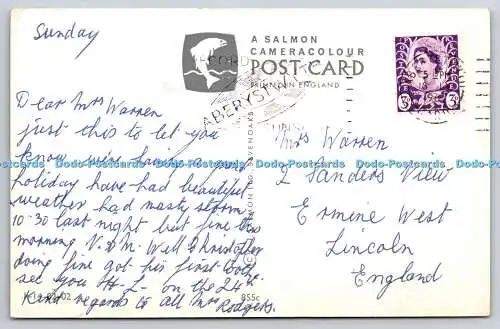 Sunday
A SALMON
CAMERACOLOUR
POST CARD
PRINTED IN ENGLAND
ABERYSTWYTH
3D 3D
Dear Mrs Warren
just this to let you
know we're having a
holiday have had beautiful
weather had nasty storm
10-30 last night but fine this
morning V. D. M. Well Christopher
doing fine got his first tooth
see you H-L- on the 24th
Kind regards to all Mrs Rodgers.
Mrs Warren
2 Sanders View
Ermine West
Lincoln
England
855c
Do-Postcards Do-Postcards Do-Postcards Do-Postcards Do-Postcards